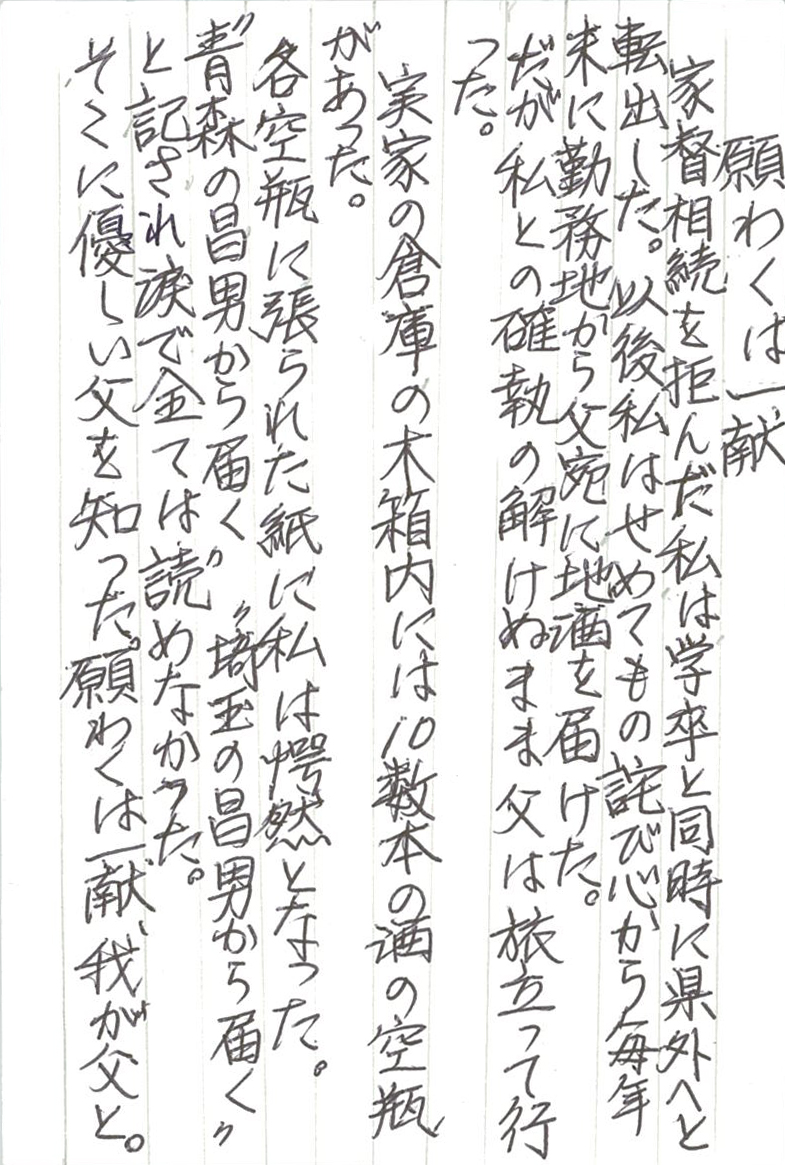 願わくは一献
家督相続を拒んだ私は学卒と同時に県外へと
転出した。以後私はせめてもの詫び心から毎年
末に勤務地から父宛に地酒を届けた。
だが私との確執の解けぬまま父は旅立って行
った。
実家の倉庫の木箱内には10数本の酒の空瓶
があった。
各空瓶に張られた紙に私は愕然となった。
〝青森の昌男から届く〟〝埼玉の昌男から届く〟
と記され涙で全ては読めなかった。
そこに優しい父を知った。願わくは一献、我が父と。